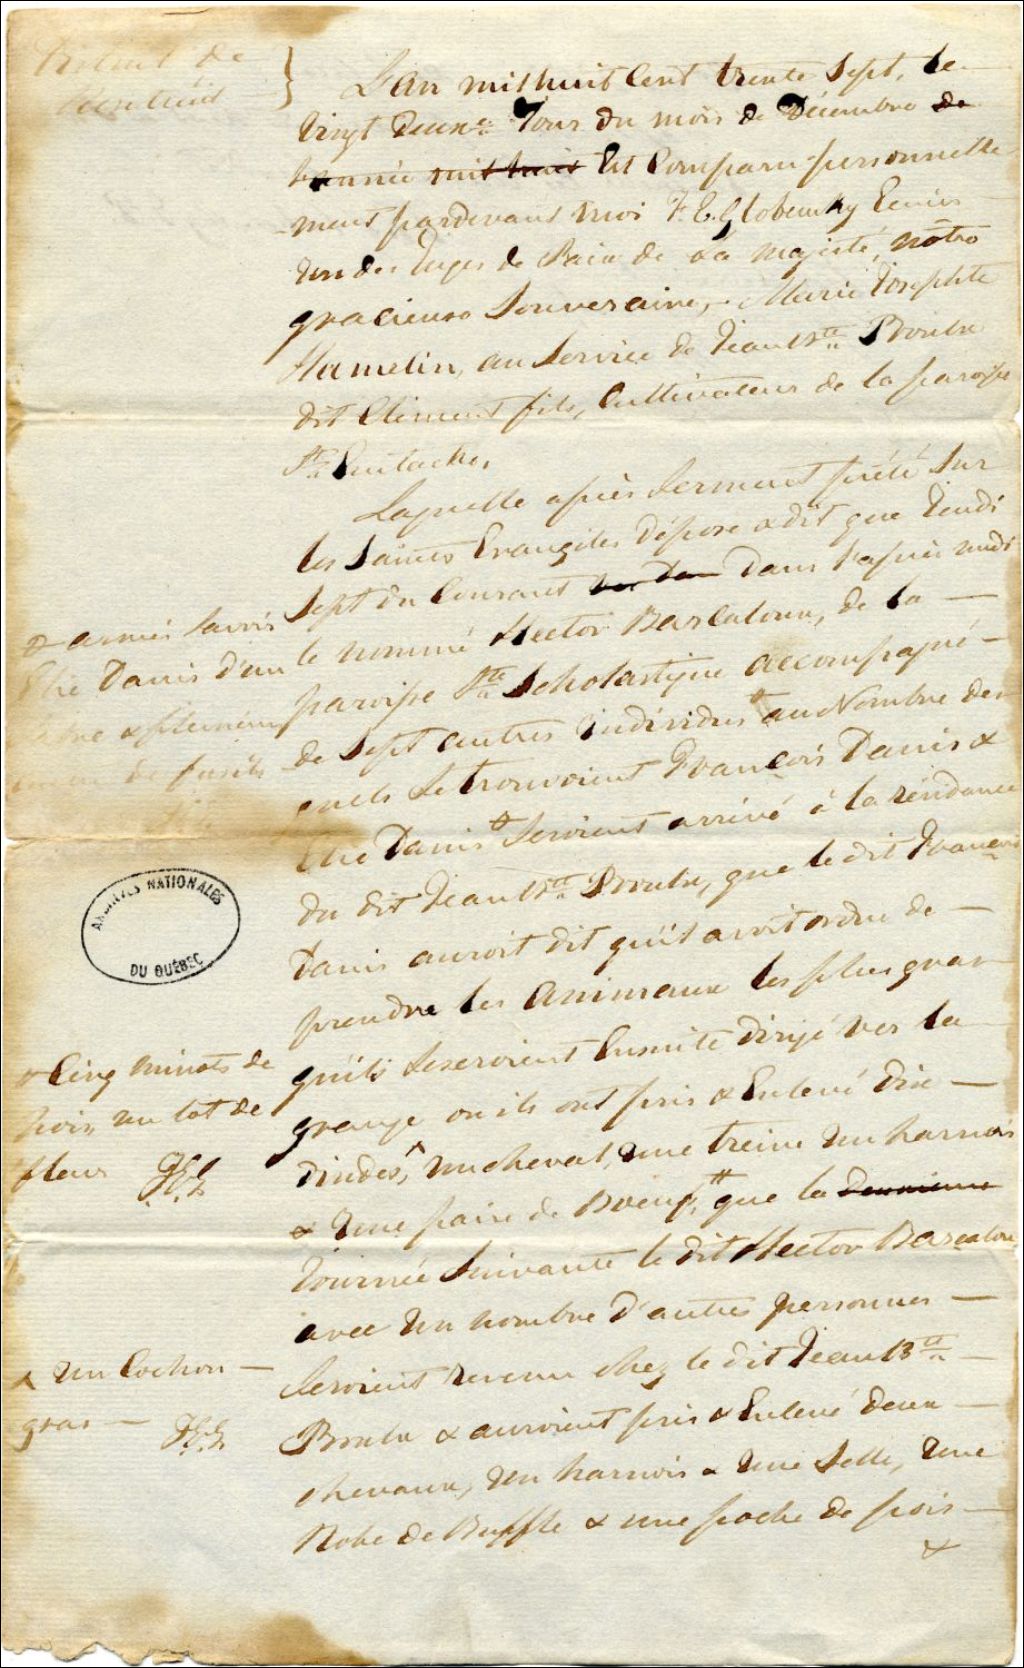 District de
L'an mil huit Cent trente Sept, le
Vingt Deuxe. Jour du mois de Décembre de
l'année mil huit Est Comparu personnelle
-ment pardevant moi F. E. Globensky Ecuier
Un des Juges de Paix de Sa Majesté, nôtre
gracieuse Souveraine, Marie Josephte
Hamelin, au Service de Jean Bte. Proulx
dit Clément fils, Cultivateur de la paroisse
St. Eustache.
Laquelle après Serment prêté Sur
les Saints Evangiles Dépose & dit que Jeudi
Sept du Courant dans l'après midi
le nommé Hector Bascatoux, de la
paroisse Ste. Scholastique accompagné
de Sept autres individus au Nombre des
quels Se trouvoient François Danis &
Elie Danis Seroient arrivé à la résidance
du dit Jean Bte. Proulx, que le dit François
Danis auroit dit qu'il avoit ordre de
prendre les Animaux les plus gras
qu'ils Se seroient Ensuite dirigé vers la
grange ou ils ont pris & Enlevé dix
dindes, un cheval, une treine un harnois
& une paire de Boeufs, que la
Journée Suivante le dit Hector Bascatoux
avec un nombre d'autres personnes
Seroient revenu chez le dit Jean Bte.
Proulx & auroient pris & Enlevé deux
chevaux, un harnois & une Selle, une
Robe de Buffle & une poche de pois
&
& armés Savoir
Elie Danis d'un
& plusieurs
de fusils
ARCHIVES NATIONALES
DU QUÉBEC
& Cinq minots de
pois, un lot de
fleur F.E.G.
^ un Cochon
gras F.E.G.